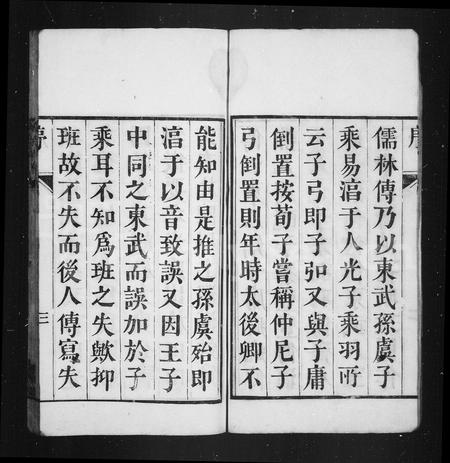 儒林傳乃以東武孫虞子
乘易淄于人光子乘羽所
云子弓即子弘又與子庸
倒置按荀子嘗稱仲尼子
弓倒置則年時太後卿不
能知由是推之孫虞殆即
淄于以音致誤又因王子
中同之東武而誤加於子
乘耳不知爲班之失歟抑
班故不失而後人傳寫失
三